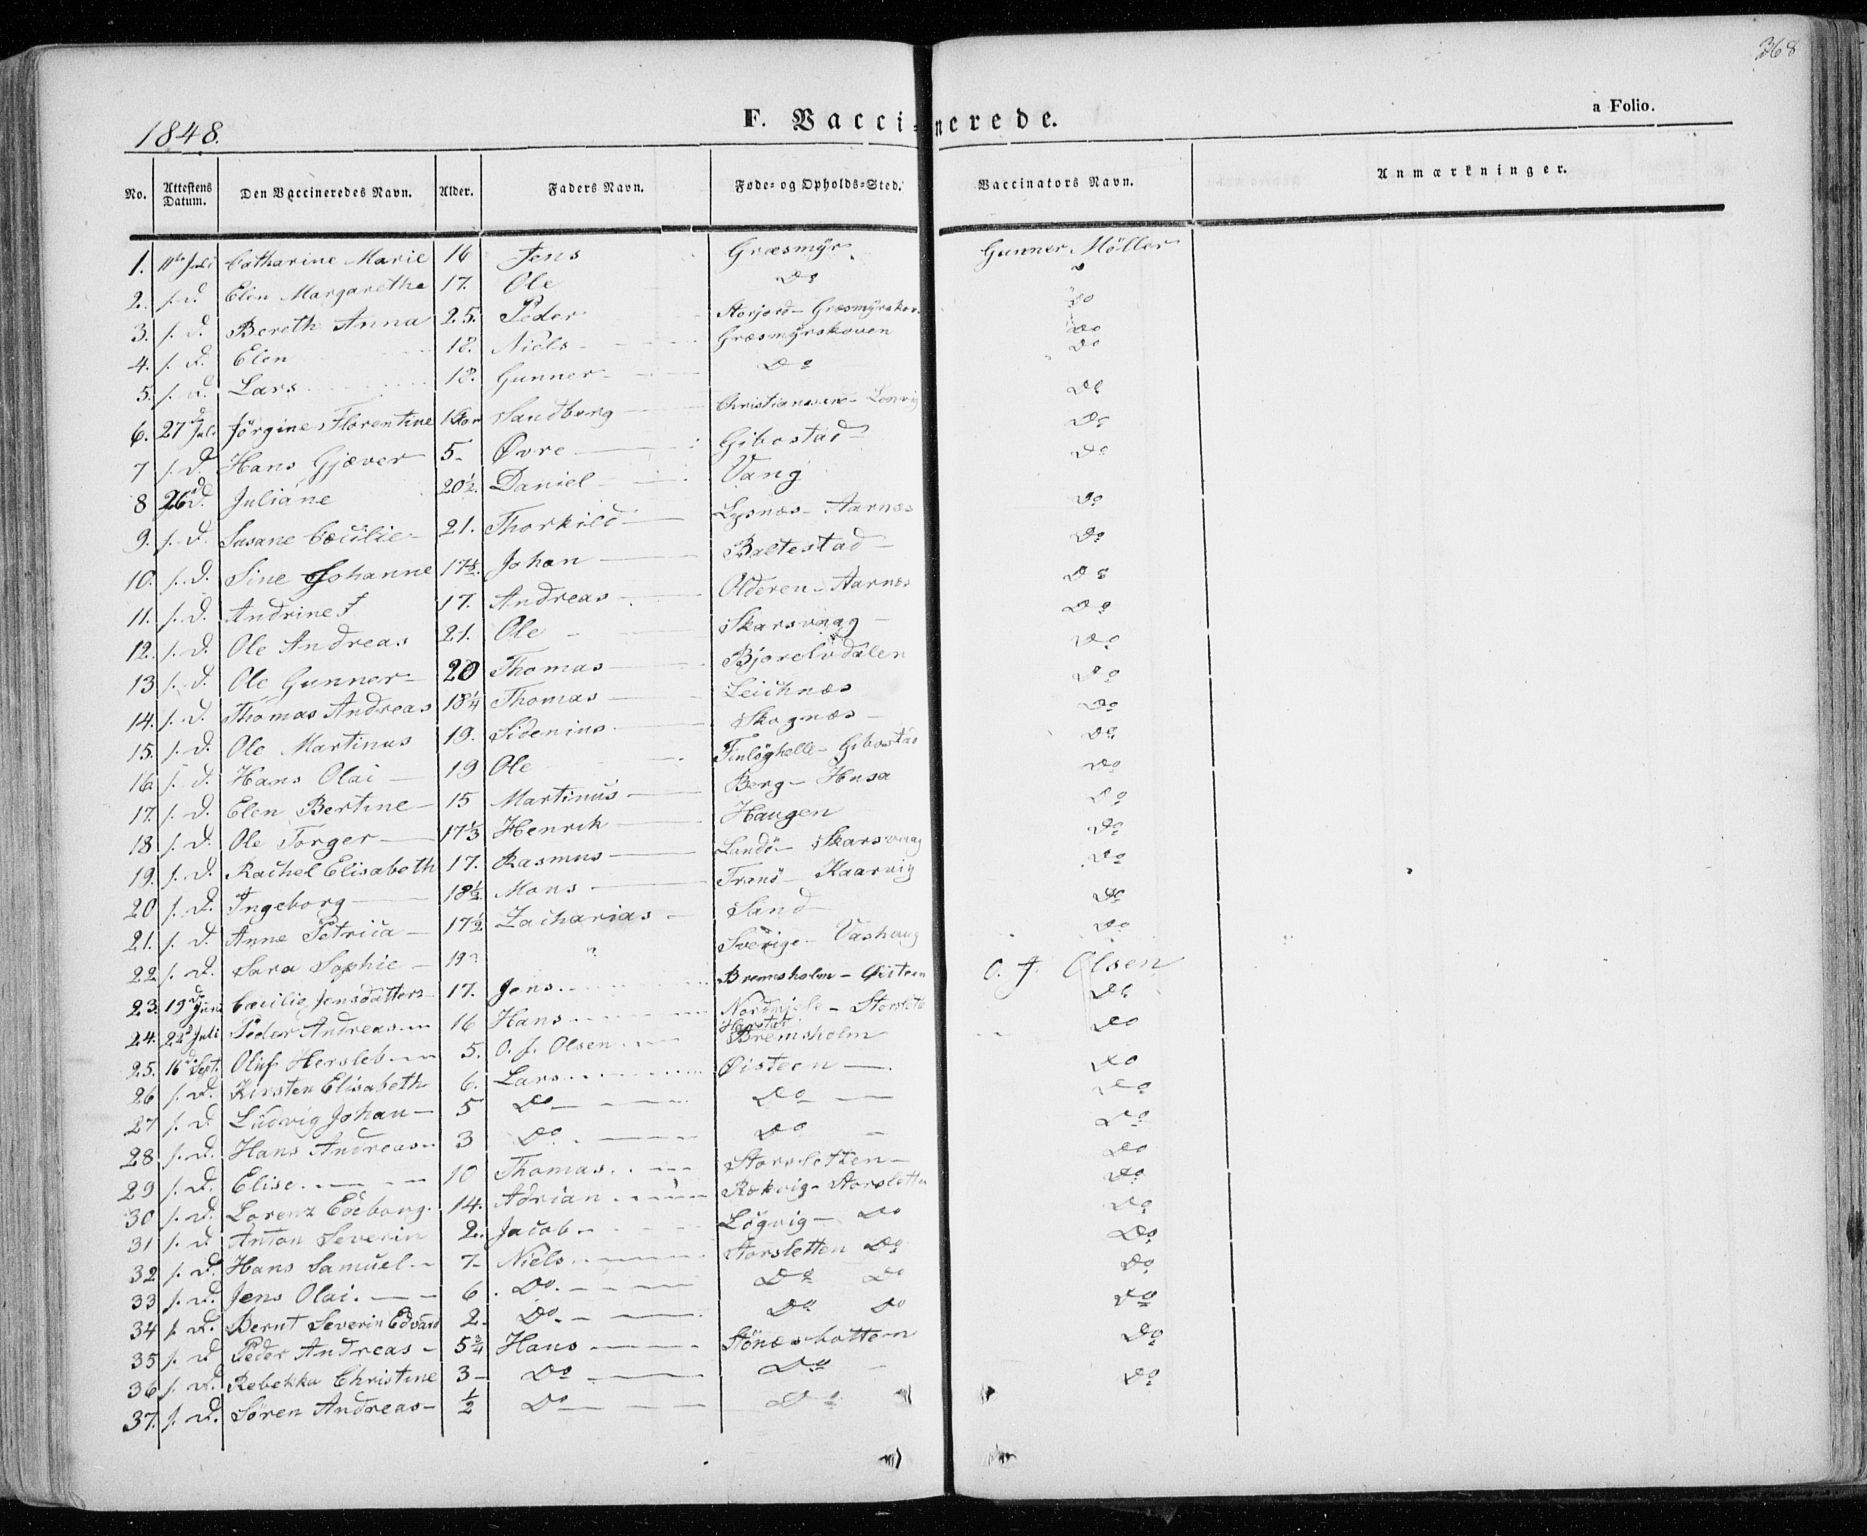 368
1848.
F. Vaccinerede.
a Folio.
No. Attestens Datum. Den Vaccineredes Navn. Alder. Faders Navn. Føde- og Opholds-Sted. Vaccinators Navn. Anmærkninger.
1. 11te Juli Catharine Marie 16 Jens Græsmÿr Gunner Möller
2. s. d. Elen Margarethe 17. Ole Do
3. s. d. Bereth Anna 25. Peder Storjord - Do
4. s. d. Elen 18. Niels Græsmÿrskoven Do
5. s. d. Lars 18. Gunner Do Do
6. 27d Juli Jörgine Florentine Sandberg Do
7 s. d. Hans Gjæver 5 Øvre Gibostad Do
8 26d. Juliane 20½. Daniel Vang Do
9. s. d. Susane Cæcilie 21. Thorkild Lysnæs - Aarnæs Do
10. s. d. Sine Johanne 17½. Johan Baltestad Do
11. s. d. Andrine J 17. Andreas Olderen - Aarnæs Do
12. s. d. Ole Andreas 21. Ole Skarsvaag Do
13 s. d. Ole Gunner 20 Thomas Bjorelvdalen Do
14. s. d. Thomas Andreas 18¼ Thomas Leichnæs Do
15. s. d. Ole Martinus 19. Sidenius Skognæs Do
16 s. d. Hans Olai 19 Ole - Gibostad Do
17. s. d. Elen Bertine 15 Martinus Berg - Do
18 s. d. Ole Torger 17⅓ Henrik Haugen Do
19. s. d. Rachel Elisabeth 17. Rasmus Lundö - Skarsvaag Do
20 s. d. Ingeborg 18½ Mons Tranö - Kaarvig Do
21. s. d. Anne Petrica 17½ Zacharias Sand Do
22 s. d. Sara Sophie 19 " Sverige - Vashaug Do
23. 19d Juni Cæcilie Jensdatter 17. Jens Bremsholm - Øisteen O. J. Olsen
24. 22d Juli Peder Andreas 16 Hans Nordmjele - Storslett Do
25. 16d Sept. Oluf Hersleb 5. O. J. Olsen Bremsholm Do
26 s. d. Kirsten Elisabeth 6. Lars Øisteen Do
27 s. d. Ludvig Johan 5 Do Do Do
28 s. d. Hans Andreas 3 Do Do Do
29 s. d. Elise 10 Thomas Storsletten Do
30 s. d. Lorenz Edeborg. 14. Adrian Rekvig - Storsletten Do
31 s. d. Anton Severin 2. Jacob Lögvig - Do Do
32 s. d. Hans Samuel 7 Niels Storsletten Do Do
33 s. d. Jens Olai 6 Do Do Do Do
34 s. d. Bernt Severin Edvard 2 Do Do Do Do
35 s. d. Peder Andreas 5¾ Hans Stönæsbotten Do
36 s. d. Rebekka Christine 3 Do Do Do
37. s. d. Sören Andreas ½ Do Do